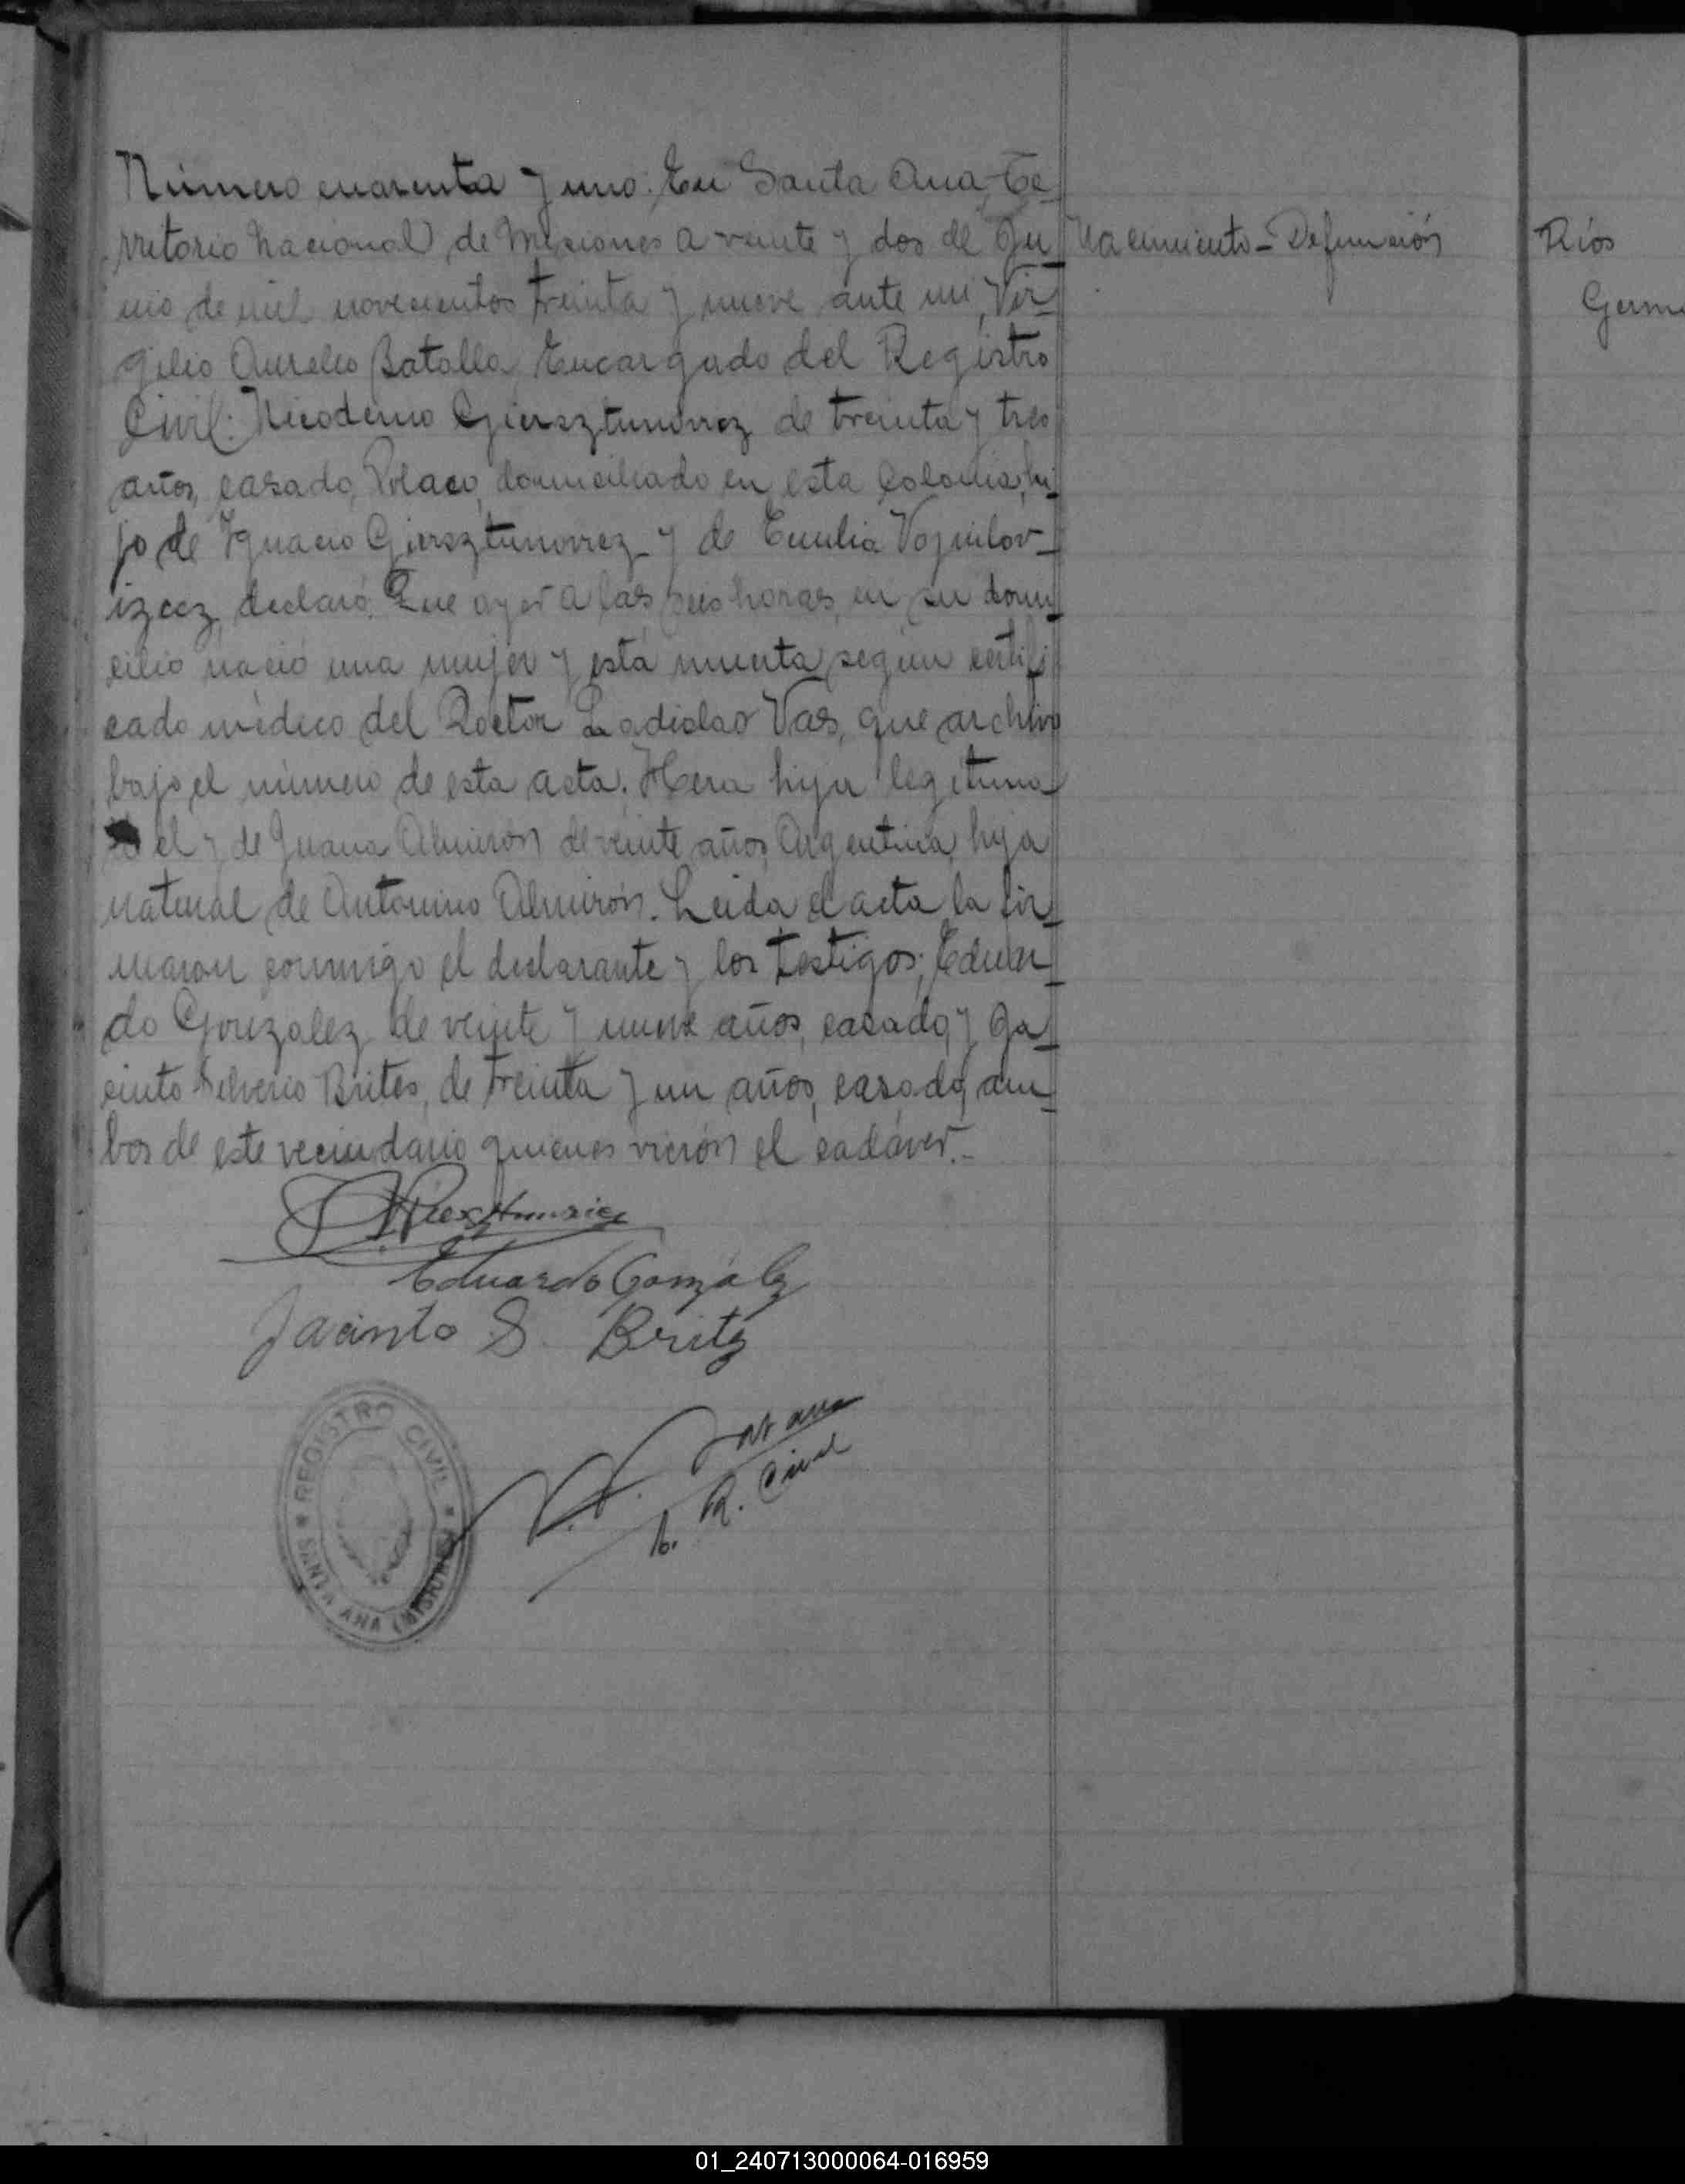 Número cuarenta y uno: En Santa Ana, Te-
rritorio Nacional de Misiones a veinte y dos de Ju-
nio de mil novecientos treinta y nueve ante mi, Vir-
gilio Aurelio Batalla, Encargado del Registro
Civil: Nicodemo Giersztunovicz de treinta y tres
años, casado, Polaco, domiciliado en esta Colonia, hi-
jo de Ygnacio Giersztunovicz y de Emilia
declaró: Que ayer a las seis horas, en su domi-
cilio nació una mujer y está muerta, según certifi-
cado médico del Doctor Ladislao Vas, que archivo
bajo el número de esta acta. Hera hija legitima
el y de Juana Almirón de veinte años, Argentina, hija
natural de Antonino Almirón. Leida el acta la fir-
maron conmigo el declarante y los testigos: Eduar-
do Gonzalez de veinte y nueve años, casado, y Ja-
cinto Silverio Brites, de treinta y un años, casado, am-
bos de este vecindario quienes vieron el cadáver.-
Nacimiento - Defunción
Ríos
Eduardo Gonzalez
Jacinto S. Britez
R. Civil
REGISTRO CIVIL
SANTA ANA (MISIONES)
01_240713000064-016959